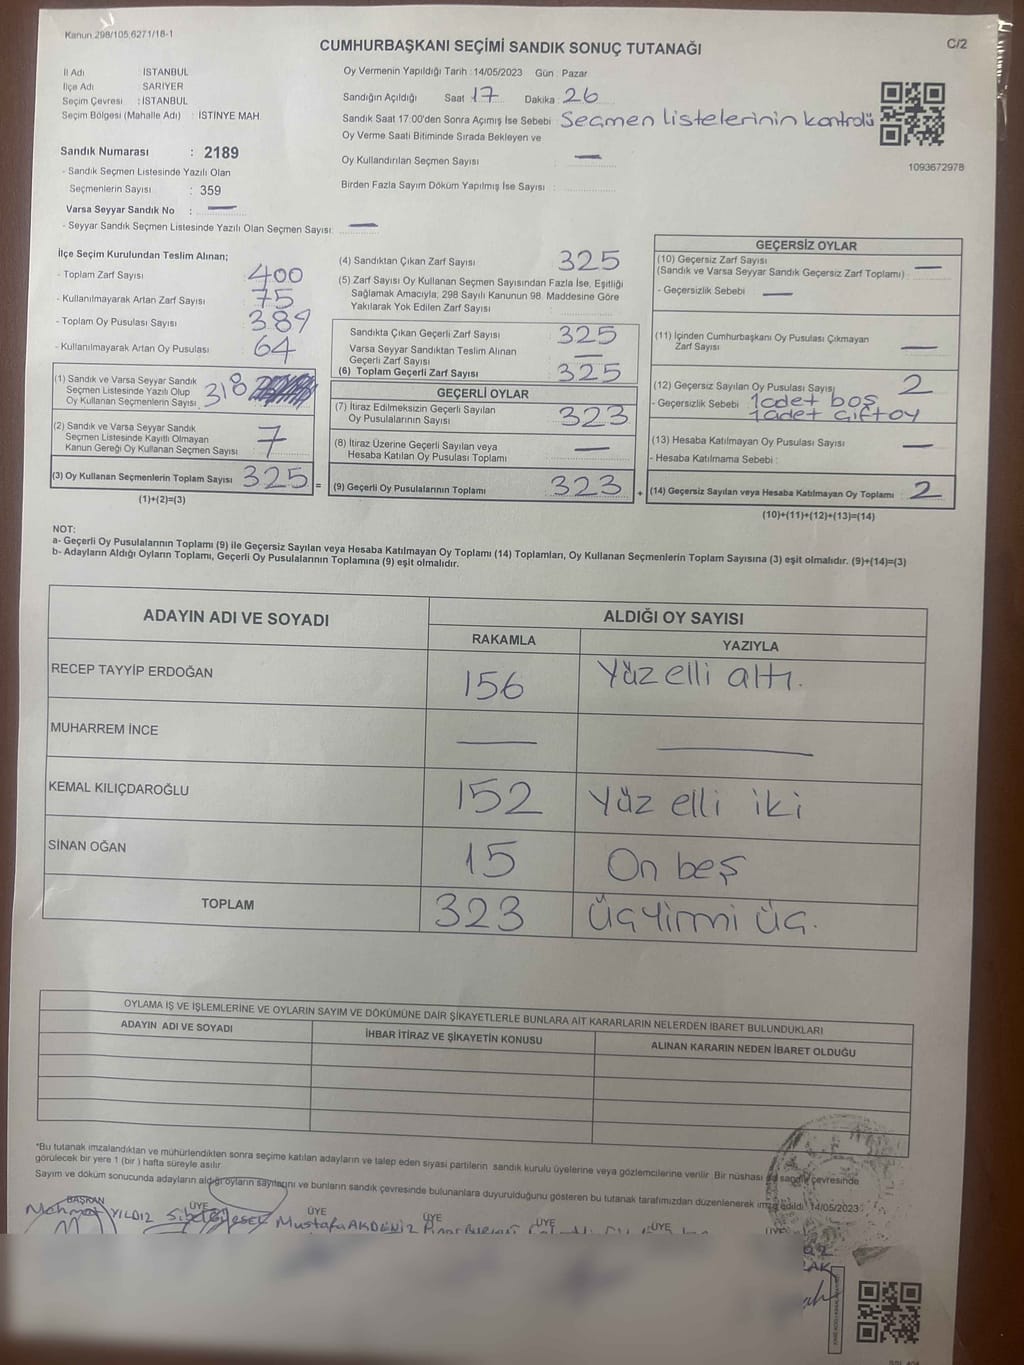 Kanun.298/105;6271/18-1
CUMHURBAŞKANI SEÇİMİ SANDIK SONUÇ TUTANAĞI
C/2
İl Adı : İSTANBUL
İlçe Adı : SARIYER
Seçim Çevresi : İSTANBUL
Seçim Bölgesi (Mahalle Adı) : İSTİNYE MAH.
Oy Vermenin Yapıldığı Tarih : 14/05/2023 Gün : Pazar
Sandığın Açıldığı Saat 17 Dakika : 26
Sandık Saat 17.00'den Sonra Açımış İse Sebebi : Seçmen listelerinin kontrolü
Oy Verme Saati Bitiminde Sırada Bekleyen ve
Oy Kullandırılan Seçmen Sayısı : —
Birden Fazla Sayım Döküm Yapılmış İse Sayısı :
1093672978
Sandık Numarası : 2189
- Sandık Seçmen Listesinde Yazılı Olan
Seçmenlerin Sayısı : 359
Varsa Seyyar Sandık No : —
- Seyyar Sandık Seçmen Listesinde Yazılı Olan Seçmen Sayısı: —
İlçe Seçim Kurulundan Teslim Alınan;
- Toplam Zarf Sayısı : 400
- Kullanılmayarak Artan Zarf Sayısı : 75
- Toplam Oy Pusulası Sayısı : 389
- Kullanılmayarak Artan Oy Pusulası : 64
(1) Sandık ve Varsa Seyyar Sandık
Seçmen Listesinde Yazılı Olup
Oy Kullanan Seçmenlerin Sayısı : 318
(2) Sandık ve Varsa Seyyar Sandık
Seçmen Listesinde Kayıtlı Olmayan
Kanun Gereği Oy Kullanan Seçmen Sayısı : 7
(3) Oy Kullanan Seçmenlerin Toplam Sayısı : 325 =
(1)+(2)=(3)
(4) Sandıktan Çıkan Zarf Sayısı : 325
(5) Zarf Sayısı Oy Kullanan Seçmen Sayısından Fazla İse, Eşitliği
Sağlamak Amacıyla; 298 Sayılı Kanunun 98. Maddesine Göre
Yakılarak Yok Edilen Zarf Sayısı :
Sandıkta Çıkan Geçerli Zarf Sayısı : 325
Varsa Seyyar Sandıktan Teslim Alınan
Geçerli Zarf Sayısı : —
(6) Toplam Geçerli Zarf Sayısı : 325
GEÇERLİ OYLAR
(7) İtiraz Edilmeksizin Geçerli Sayılan
Oy Pusulalarının Sayısı : 323
(8) İtiraz Üzerine Geçerli Sayılan veya
Hesaba Katılan Oy Pusulası Toplamı : —
(9) Geçerli Oy Pusulalarının Toplamı : 323 +
GEÇERSİZ OYLAR
(10) Geçersiz Zarf Sayısı
(Sandık ve Varsa Seyyar Sandık Geçersiz Zarf Toplamı) : —
- Geçersizlik Sebebi : —
(11) İçinden Cumhurbaşkanı Oy Pusulası Çıkmayan
Zarf Sayısı : —
(12) Geçersiz Sayılan Oy Pusulası Sayısı : 2
- Geçersizlik Sebebi : 1 adet boş
1 adet çift oy
(13) Hesaba Katılmayan Oy Pusulası Sayısı : —
- Hesaba Katılmama Sebebi :
(14) Geçersiz Sayılan veya Hesaba Katılmayan Oy Toplamı : 2
(10)+(11)+(12)+(13)=(14)
NOT:
a- Geçerli Oy Pusulalarının Toplamı (9) ile Geçersiz Sayılan veya Hesaba Katılmayan Oy Toplamı (14) Toplamları, Oy Kullanan Seçmenlerin Toplam Sayısına (3) eşit olmalıdır. (9)+(14)=(3)
b- Adayların Aldığı Oyların Toplamı, Geçerli Oy Pusulalarının Toplamına (9) eşit olmalıdır.
ADAYIN ADI VE SOYADI ALDIĞI OY SAYISI
RAKAMLA YAZIYLA
RECEP TAYYİP ERDOĞAN 156 Yüz elli altı.
MUHARREM İNCE — —
KEMAL KILIÇDAROĞLU 152 Yüz elli iki
SİNAN OĞAN 15 On beş
TOPLAM 323 Üçyirmi üç.
OYLAMA İŞ VE İŞLEMLERİNE VE OYLARIN SAYIM VE DÖKÜMÜNE DAİR ŞİKAYETLERLE BUNLARA AİT KARARLARIN NELERDEN İBARET BULUNDUKLARI
ADAYIN ADI VE SOYADI İHBAR İTİRAZ VE ŞİKAYETİN KONUSU ALINAN KARARIN NEDEN İBARET OLDUĞU
*Bu tutanak imzalandıktan ve mühürlendikten sonra seçime katılan adayların ve talep eden siyasi partilerin sandık kurulu üyelerine veya gözlemcilerine verilir. Bir nüshası da sandık çevresinde
görülecek bir yere 1 (bir) hafta süreyle asılır.
Sayım ve döküm sonucunda adayların aldığı oyların sayılarını ve bunların sandık çevresinde bulunanlara duyurulduğunu gösteren bu tutanak tarafımızdan düzenlenerek imza edildi. 14/05/2023
BAŞKAN ÜYE ÜYE ÜYE ÜYE ÜYE ÜYE
Mehmet YILDIZ Mustafa AKDENİZ